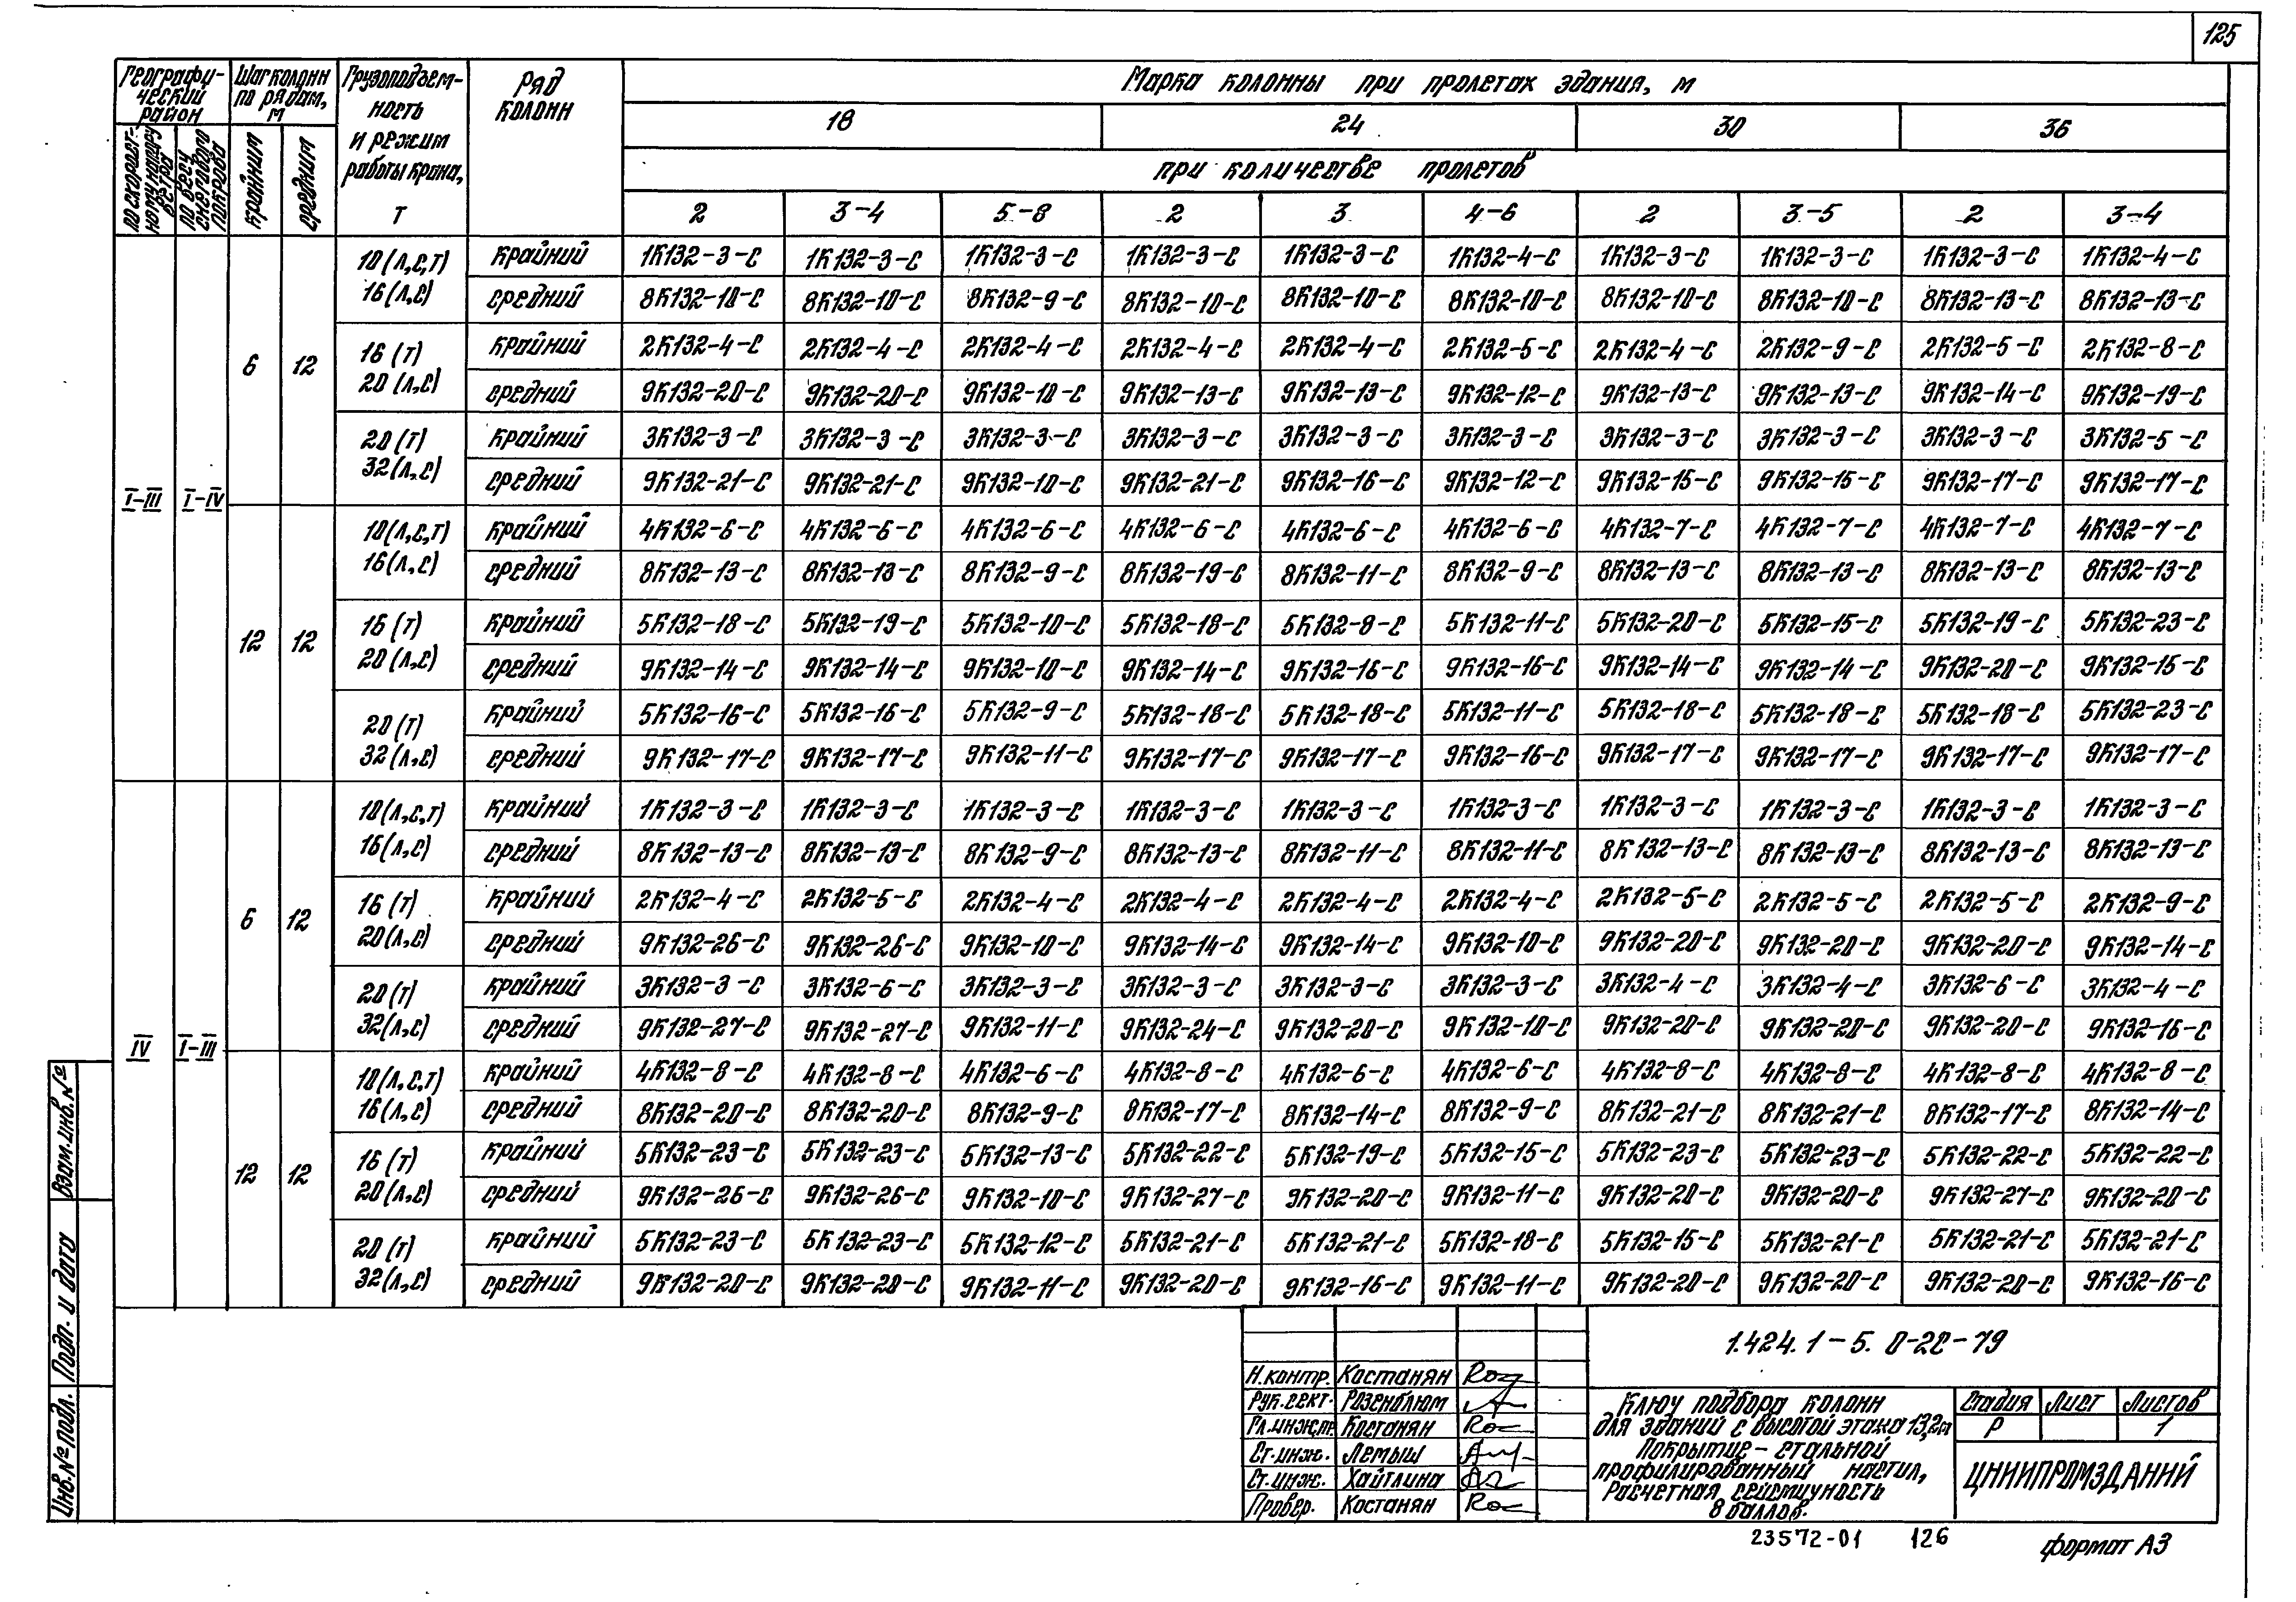 125
Географический район
Шаг колонн по рядам, м
Грузоподъемность и режим работы крана, т
Ряд колонн
Марка колонны при пролетах здания, м
по скоростному напору ветра
по весу снегового покрова
крайним
средним
18 24 30 36
при количестве пролетов
2 3-4 5-8 2 3 4-6 2 3-5 2 3-4
I-III I-IV
6 12
10(Л,С,Т) 16(Л,С)
крайний 1К132-3-С 1К132-3-С 1К132-3-С 1К132-3-С 1К132-3-С 1К132-4-С 1К132-3-С 1К132-3-С 1К132-3-С 1К132-4-С
средний 8К132-10-С 8К132-10-С 8К132-9-С 8К132-10-С 8К132-10-С 8К132-10-С 8К132-10-С 8К132-10-С 8К132-13-С 8К132-13-С
16(Т) 20(Л,С)
крайний 2К132-4-С 2К132-4-С 2К132-4-С 2К132-4-С 2К132-4-С 2К132-5-С 2К132-4-С 2К132-9-С 2К132-5-С 2К132-8-С
средний 9К132-20-С 9К132-20-С 9К132-10-С 9К132-13-С 9К132-13-С 9К132-12-С 9К132-13-С 9К132-13-С 9К132-14-С 9К132-19-С
20(Т) 32(Л,С)
крайний 3К132-3-С 3К132-3-С 3К132-3-С 3К132-3-С 3К132-3-С 3К132-3-С 3К132-3-С 3К132-3-С 3К132-3-С 3К132-5-С
средний 9К132-21-С 9К132-21-С 9К132-10-С 9К132-21-С 9К132-16-С 9К132-12-С 9К132-15-С 9К132-15-С 9К132-17-С 9К132-17-С
12 12
10(Л,С,Т) 16(Л,С)
крайний 4К132-6-С 4К132-6-С 4К132-6-С 4К132-6-С 4К132-6-С 4К132-6-С 4К132-7-С 4К132-7-С 4К132-7-С 4К132-7-С
средний 8К132-13-С 8К132-13-С 8К132-9-С 8К132-19-С 8К132-11-С 8К132-9-С 8К132-13-С 8К132-13-С 8К132-13-С 8К132-13-С
16(Т) 20(Л,С)
крайний 5К132-18-С 5К132-19-С 5К132-10-С 5К132-18-С 5К132-8-С 5К132-11-С 5К132-20-С 5К132-15-С 5К132-19-С 5К132-23-С
средний 9К132-14-С 9К132-14-С 9К132-10-С 9К132-14-С 9К132-16-С 9К132-16-С 9К132-14-С 9К132-14-С 9К132-20-С 9К132-15-С
20(Т) 32(Л,С)
крайний 5К132-16-С 5К132-16-С 5К132-9-С 5К132-18-С 5К132-18-С 5К132-11-С 5К132-18-С 5К132-18-С 5К132-18-С 5К132-23-С
средний 9К132-17-С 9К132-17-С 9К132-11-С 9К132-17-С 9К132-17-С 9К132-16-С 9К132-17-С 9К132-17-С 9К132-17-С 9К132-17-С
IV I-III
6 12
10(Л,С,Т) 16(Л,С)
крайний 1К132-3-С 1К132-3-С 1К132-3-С 1К132-3-С 1К132-3-С 1К132-3-С 1К132-3-С 1К132-3-С 1К132-3-С 1К132-3-С
средний 8К132-13-С 8К132-13-С 8К132-9-С 8К132-13-С 8К132-11-С 8К132-11-С 8К132-13-С 8К132-13-С 8К132-13-С 8К132-13-С
16(Т) 20(Л,С)
крайний 2К132-4-С 2К132-5-С 2К132-4-С 2К132-4-С 2К132-4-С 2К132-4-С 2К132-5-С 2К132-5-С 2К132-5-С 2К132-9-С
средний 9К132-26-С 9К132-26-С 9К132-10-С 9К132-14-С 9К132-14-С 9К132-10-С 9К132-20-С 9К132-20-С 9К132-20-С 9К132-14-С
20(Т) 32(Л,С)
крайний 3К132-3-С 3К132-6-С 3К132-3-С 3К132-3-С 3К132-3-С 3К132-3-С 3К132-4-С 3К132-4-С 3К132-6-С 3К132-4-С
средний 9К132-27-С 9К132-27-С 9К132-11-С 9К132-24-С 9К132-20-С 9К132-10-С 9К132-20-С 9К132-20-С 9К132-20-С 9К132-16-С
12 12
10(Л,С,Т) 16(Л,С)
крайний 4К132-8-С 4К132-8-С 4К132-6-С 4К132-8-С 4К132-6-С 4К132-6-С 4К132-8-С 4К132-8-С 4К132-8-С 4К132-8-С
средний 8К132-20-С 8К132-20-С 8К132-9-С 8К132-17-С 8К132-14-С 8К132-9-С 8К132-21-С 8К132-21-С 8К132-17-С 8К132-14-С
16(Т) 20(Л,С)
крайний 5К132-23-С 5К132-23-С 5К132-13-С 5К132-22-С 5К132-19-С 5К132-15-С 5К132-23-С 5К132-23-С 5К132-22-С 5К132-22-С
средний 9К132-26-С 9К132-26-С 9К132-10-С 9К132-27-С 9К132-20-С 9К132-11-С 9К132-20-С 9К132-20-С 9К132-27-С 9К132-20-С
20(Т) 32(Л,С)
крайний 5К132-23-С 5К132-23-С 5К132-12-С 5К132-21-С 5К132-21-С 5К132-18-С 5К132-15-С 5К132-21-С 5К132-21-С 5К132-21-С
средний 9К132-20-С 9К132-20-С 9К132-11-С 9К132-20-С 9К132-16-С 9К132-11-С 9К132-20-С 9К132-20-С 9К132-20-С 9К132-16-С
Взам.инв.№
Подп. и дата
Инв.№ подл.
1.424.1-5.0-2С-79
Н.контр. Костанян
Рук.сект. Розенблюм
Гл.инж.пр. Костанян
Ст.инж. Лемыш
Ст.инж. Хайтлина
Провер. Костанян
Ключ подбора колонн
для зданий с высотой этажа 13,2м
Покрытие - стальной
профилированный настил,
Расчетная сейсмичность
8 баллов.
Стадия Лист Листов
Р 1
ЦНИИПРОМЗДАНИЙ
23572-01 126
формат А3